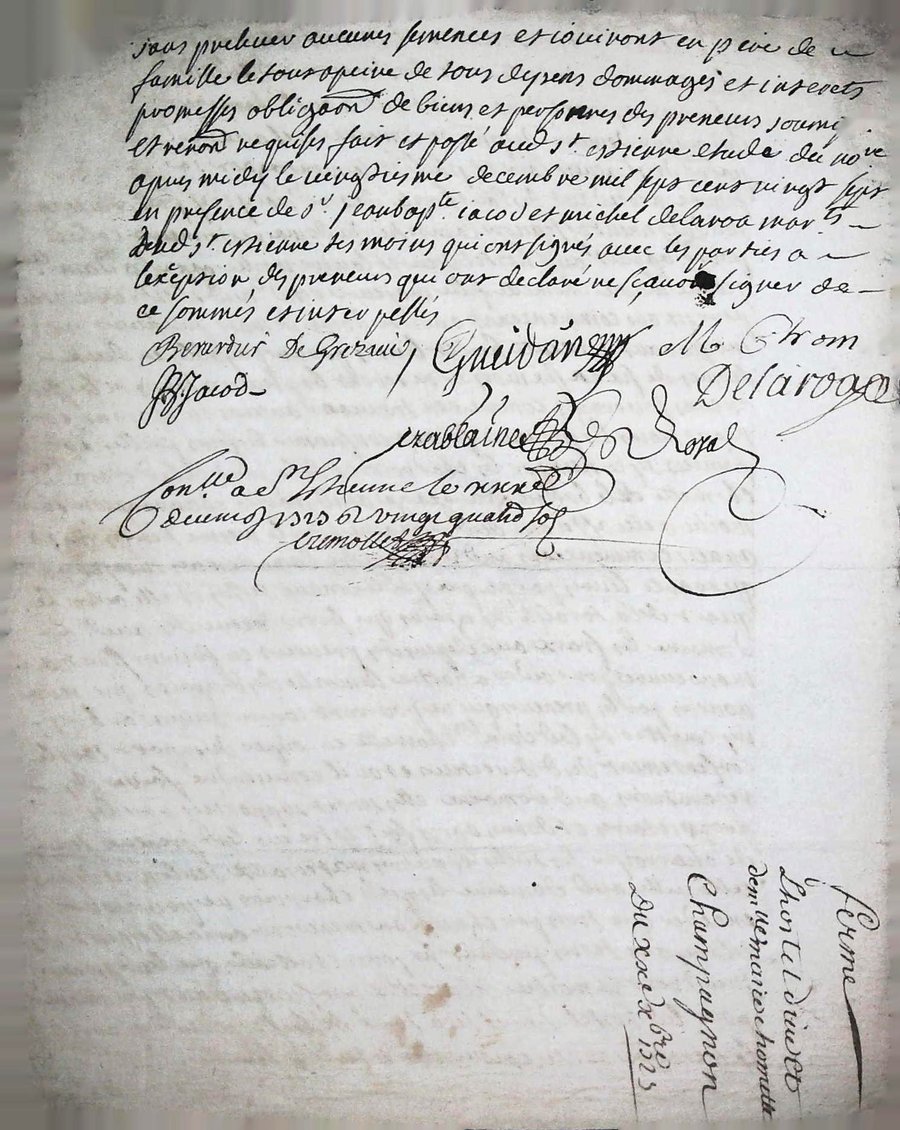 sans prelever aucunes semences et jouiront en pere de
famille le tout a peine de tous depens dommages et interets
promesses obligaon de biens et personnes des preneurs soumi
et renon requises fait et passé aud st estienne etude du nore
apres midy le vingtiesme decembre mil sept cent vingt sept
en presence de sr jean bapte jacod et michel delaroa marts
dud st estienne tesmoins qui ont signés avec les parties a
lexception des preneurs qui ont declaré ne sçavoir signer de
ce sommés et interpellés
Berardier De Grezieu Gueidan M Thom
JB Jacod Delaroa
Royal
Conllé a St Estienne le
decemb 1727 vingt quatre sol
ferme
Lhostel dieu et
Champagnon
Du xxe xbre 1727